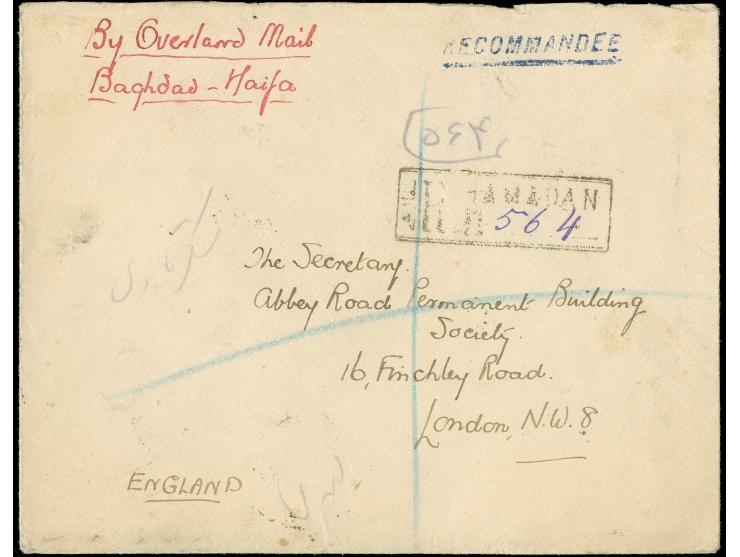 By Overland Mail
RECOMMANDEE
Baghdad - Haifa
HAMADAN
564
The Secretary.
Abbey Road Permanent Building
Society.
16, Finchley Road.
London, N.W. 8
ENGLAND